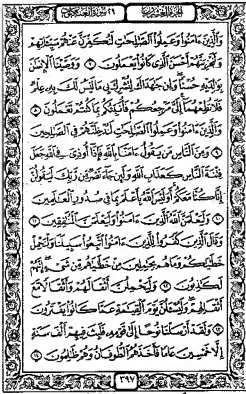 الجزء العشرون ٢٩ سورة العنكبوت
وَالَّذِينَ ءَامَنُوا۟ وَعَمِلُوا۟ الصَّٰلِحَٰتِ لَنُكَفِّرَنَّ عَنْهُمْ سَيِّـَٔاتِهِمْ
وَلَنَجْزِيَنَّهُمْ أَحْسَنَ الَّذِى كَانُوا۟ يَعْمَلُونَ ٧ وَوَصَّيْنَا الْإِنسَٰنَ
بِوَٰلِدَيْهِ حُسْنًا ۖ وَإِن جَٰهَدَاكَ لِتُشْرِكَ بِى مَا لَيْسَ لَكَ بِهِۦ عِلْمٌ
فَلَا تُطِعْهُمَآ ۚ إِلَىَّ مَرْجِعُكُمْ فَأُنَبِّئُكُم بِمَا كُنتُمْ تَعْمَلُونَ ٨
وَالَّذِينَ ءَامَنُوا۟ وَعَمِلُوا۟ الصَّٰلِحَٰتِ لَنُدْخِلَنَّهُمْ فِى الصَّٰلِحِينَ
٩ وَمِنَ النَّاسِ مَن يَقُولُ ءَامَنَّا بِاللَّهِ فَإِذَآ أُوذِىَ فِى اللَّهِ جَعَلَ
فِتْنَةَ النَّاسِ كَعَذَابِ اللَّهِ وَلَئِن جَآءَ نَصْرٌ مِّن رَّبِّكَ لَيَقُولُنَّ
إِنَّا كُنَّا مَعَكُمْ ۚ أَوَلَيْسَ اللَّهُ بِأَعْلَمَ بِمَا فِى صُدُورِ الْعَٰلَمِينَ
١٠ وَلَيَعْلَمَنَّ اللَّهُ الَّذِينَ ءَامَنُوا۟ وَلَيَعْلَمَنَّ الْمُنَٰفِقِينَ ١١
وَقَالَ الَّذِينَ كَفَرُوا۟ لِلَّذِينَ ءَامَنُوا۟ اتَّبِعُوا۟ سَبِيلَنَا وَلْنَحْمِلْ
خَطَٰيَٰكُمْ وَمَا هُم بِحَٰمِلِينَ مِنْ خَطَٰيَٰهُم مِّن شَىْءٍ ۖ إِنَّهُمْ
لَكَٰذِبُونَ ١٢ وَلَيَحْمِلُنَّ أَثْقَالَهُمْ وَأَثْقَالًا مَّعَ
أَثْقَالِهِمْ ۖ وَلَيُسْـَٔلُنَّ يَوْمَ الْقِيَٰمَةِ عَمَّا كَانُوا۟ يَفْتَرُونَ
١٣ وَلَقَدْ أَرْسَلْنَا نُوحًا إِلَىٰ قَوْمِهِۦ فَلَبِثَ فِيهِمْ أَلْفَ سَنَةٍ
إِلَّا خَمْسِينَ عَامًا فَأَخَذَهُمُ الطُّوفَانُ وَهُمْ ظَٰلِمُونَ ١٤
٣٩٧